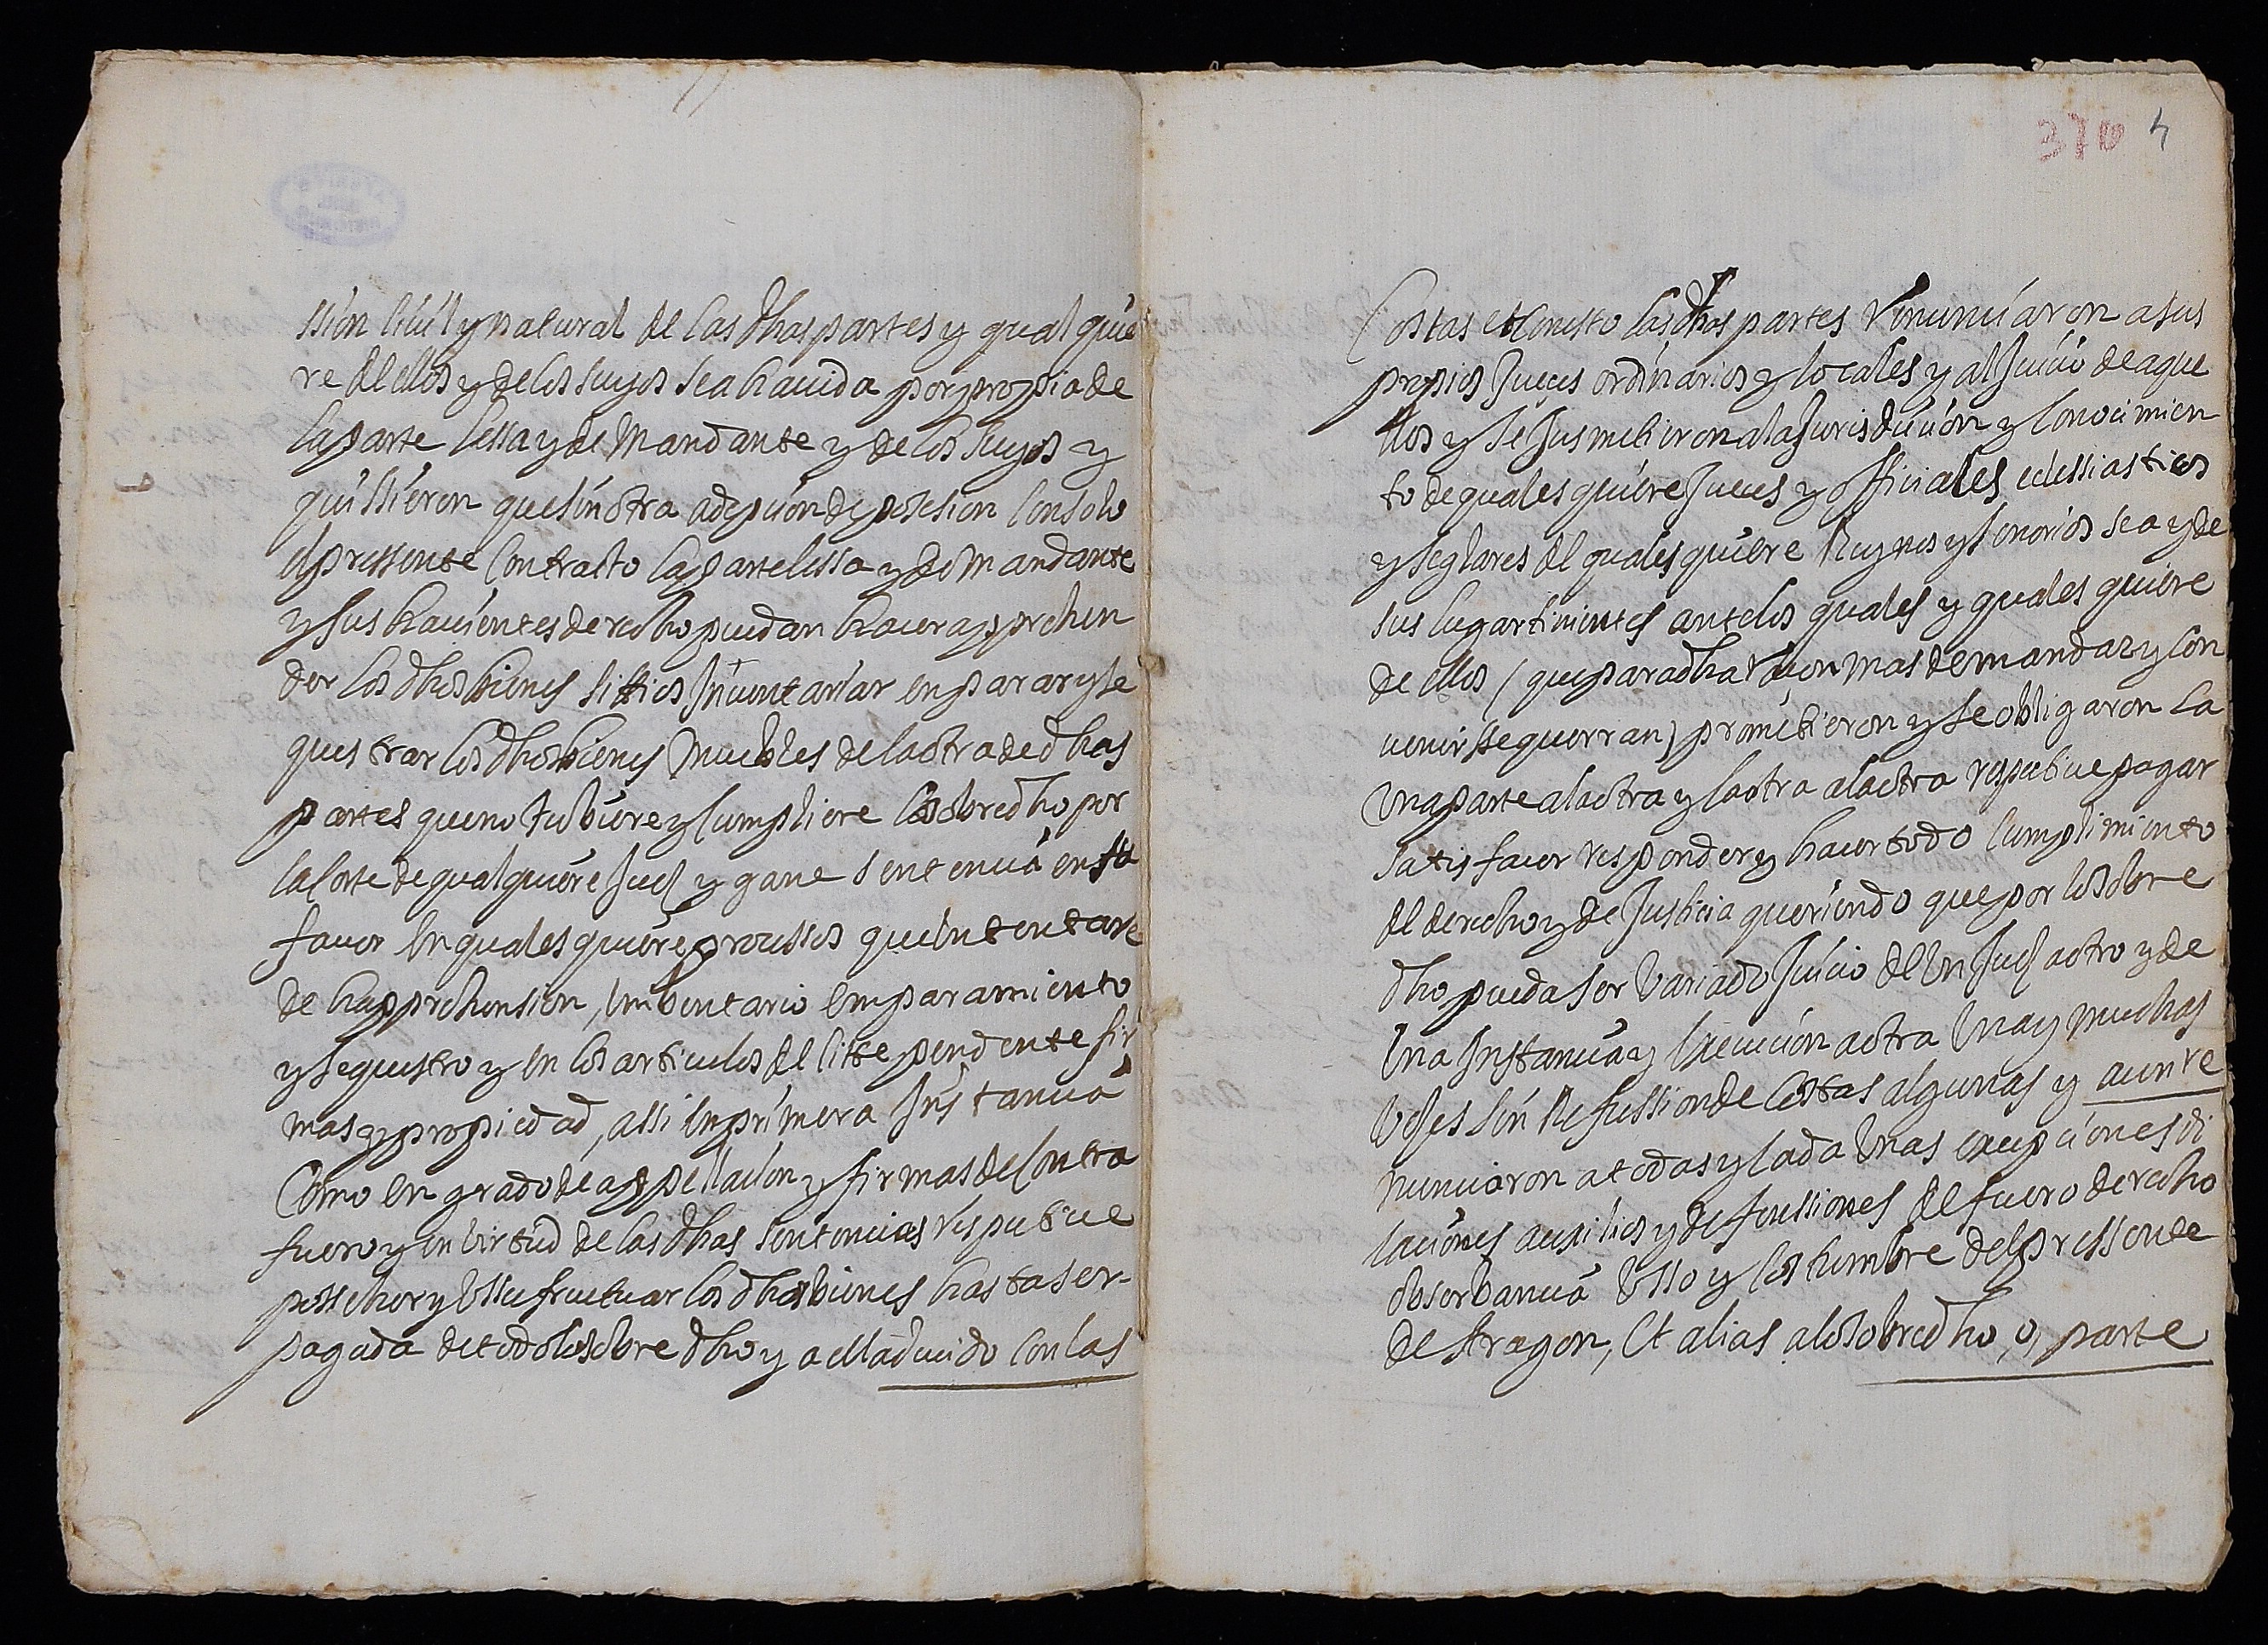 ssion ciuil y natural de las dhas partes y qual quie
re de ellos y de los suyos sea hauida por propia de
la parte lessa y de mandante y de los suyos y
quissieron que sin otra adepcion de possesion con solo
el pressente Contracto la parte lessa y de mandante
y sus hauientes derecho puedan hacer apprehen
der los dhos bienes sittios Inuentariar emparar y se
questrar los dhos bienes muebles de la otra de dhas
partes que no tubiere y cumpliere lo sobre dho por
la Corte de qual quiere Juez y gane sentencia en su
fauor en quales quiere processos que intentare
de happrehension, imbentario emparamiento
y sequestro y en los articulos de litte pendente fir
mas y propiedad, assi en primera Instancia
Como en grado de appellacion y firmas de contra
fuero y en virtud de las dhas sentencias respectiue
posseher y ussufructuar los dhos bienes hasta ser
pagada de todo lo sobre dho y a ella deuido con las
370 4
Costas et con esto las dhas partes renunciaron a sus
propios Jueces ordinarios y locales y al Juicio de aque
llos y se jusmetieron a la Jurisdiccion y conocimien
to de quales quiere Jueces y officiales eclessiasticos
y seglares de quales quiere Reynos y senorios sea y de
sus lugartinientes ante los quales y quales quiere
de ellos (que para dha racon mas demandar y con
uenir sse querran) prometieron y se obligaron la
una parte a la otra y la otra a la otra respectiue pagar
satisfacer responder y hacer todo cumplimiento
de derecho y de Justicia queriendo que por lo sobre
dho pueda ser variado Juicio de un Juez a otro y de
una Instancia y execucion a otra una y muchas
veces sin Refussion de Costas algunas y aun re
nunciaron a todas y cada unas excepciones di
laciones ausilios y defenssiones de fuero derecho
obserbancia usso y costumbre del pressente
de Aragon, et alias a lo sobre dho, o, parte